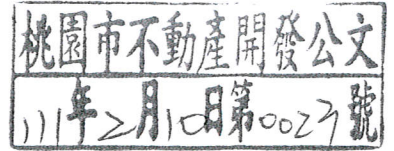 桃園市不動產開發公文
111年2月10日第0023號